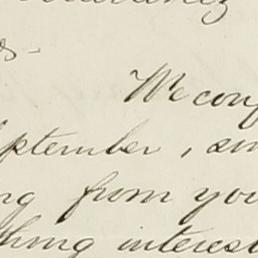 We conf
September, sin
ng from you
thing interest